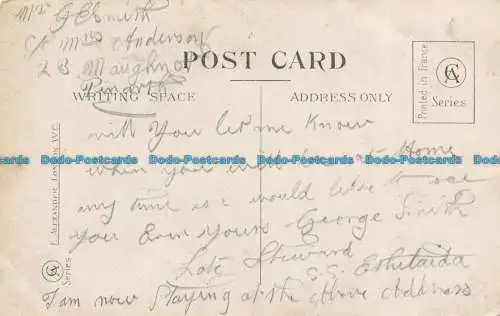 Mr G E Smith
c/o Mrs Anderson
2 B Maughn
Penarth
POST CARD
WRITING SPACE
ADDRESS ONLY
Printed in France
CA
Series
will you let me know
when you will be at Home
any time as i would like to see
you Ever yours George Smith
Late Steward
S.S.
I am now Staying at the Above Address
F. ALEXANDER, LONDON, W.C.
CA
Series
Dodo-Postcards Dodo-Postcards Dodo-Postcards Dodo-Postcards Dodo-Postcards